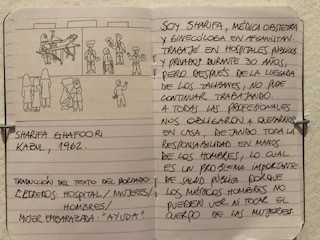 SHARIFA GHAFOORI
KABUL, 1962.
TRADUCCIÓN DEL TEXTO DEL BORDADO:
LETREROS: HOSPITAL / MUJERES /
HOMBRES /
MUJER EMBARAZADA: "AYUDA"
SOY SHARIFA, MÉDICA OBSTETRA
Y GINECÓLOGA EN AFGANISTÁN.
TRABAJÉ EN HOSPITALES PÚBLICOS
Y PRIVADOS DURANTE 30 AÑOS,
PERO DESPUÉS DE LA LLEGADA
DE LOS TALIBANES, NO PUDE
CONTINUAR TRABAJANDO.
A TODAS LAS PROFESIONALES
NOS OBLIGARON A QUEDARNOS
EN CASA, DEJANDO TODA LA
RESPONSABILIDAD EN MANOS
DE LOS HOMBRES, LO CUAL
ES UN PROBLEMA IMPORTANTE
DE SALUD PÚBLICA PORQUE
LOS MÉDICOS HOMBRES NO
PUEDEN VER NI TOCAR EL
CUERPO DE LAS MUJERES